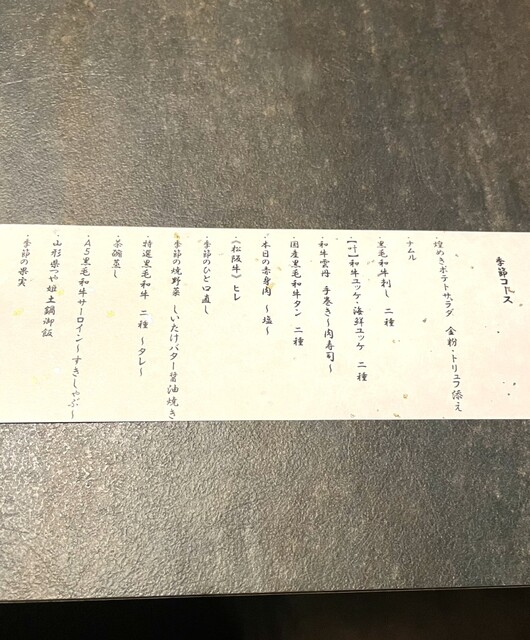 季節コース
・煌めきポテトサラダ 金粉・トリュフ添え
・ナムル
・黒毛和牛刺し 二種
・【叶】和牛ユッケ・海鮮ユッケ 二種
・和牛雲丹 手巻き〜肉寿司〜
・国産黒毛和牛タン 二種
・本日の赤身肉 〜塩〜
・《松阪牛》ヒレ
・季節のひと口直し
・季節の焼野菜 しいたけバター醤油焼き
・特選黒毛和牛 二種 〜タレ〜
・茶碗蒸し
・A5黒毛和牛サーロイン〜すきしゃぶ〜
・山形県つや姫土鍋御飯
・季節の果実